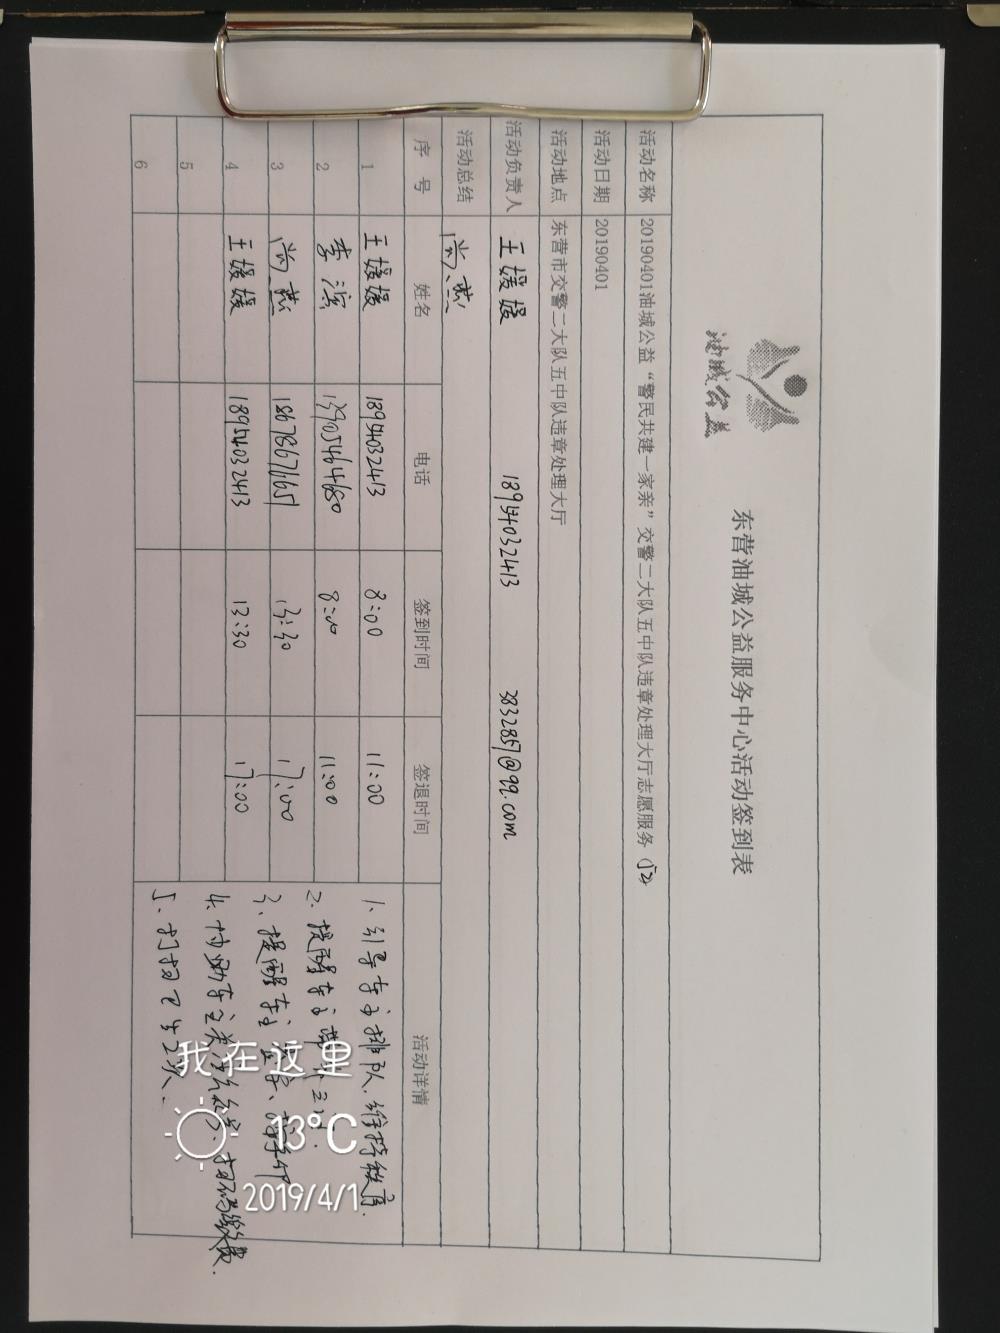 油城公益
东营油城公益服务中心活动签到表
活动名称 20190401油城公益“警民共建一家亲”交警二大队五中队违章处理大厅志愿服务
活动日期 20190401
活动地点 东营市交警二大队五中队违章处理大厅
活动负责人 王媛媛 18954032413 3832857@qq.com
活动总结 尚燕
序号 姓名 电话 签到时间 签退时间 活动详情
1 王媛媛 18954032413 8:00 11:00
2 李滨 13905464680 8:00 11:00
3 尚燕 18678671651 13:30 17:00
4 王媛媛 18954032413 13:30 17:00
5
6
1、引导车主排队、维持秩序.
2、提醒车主
3、提醒车主签字、按手印
4、协助车主 扫码缴费.
5、打扫卫生
我在这里
13°C
2019/4/1